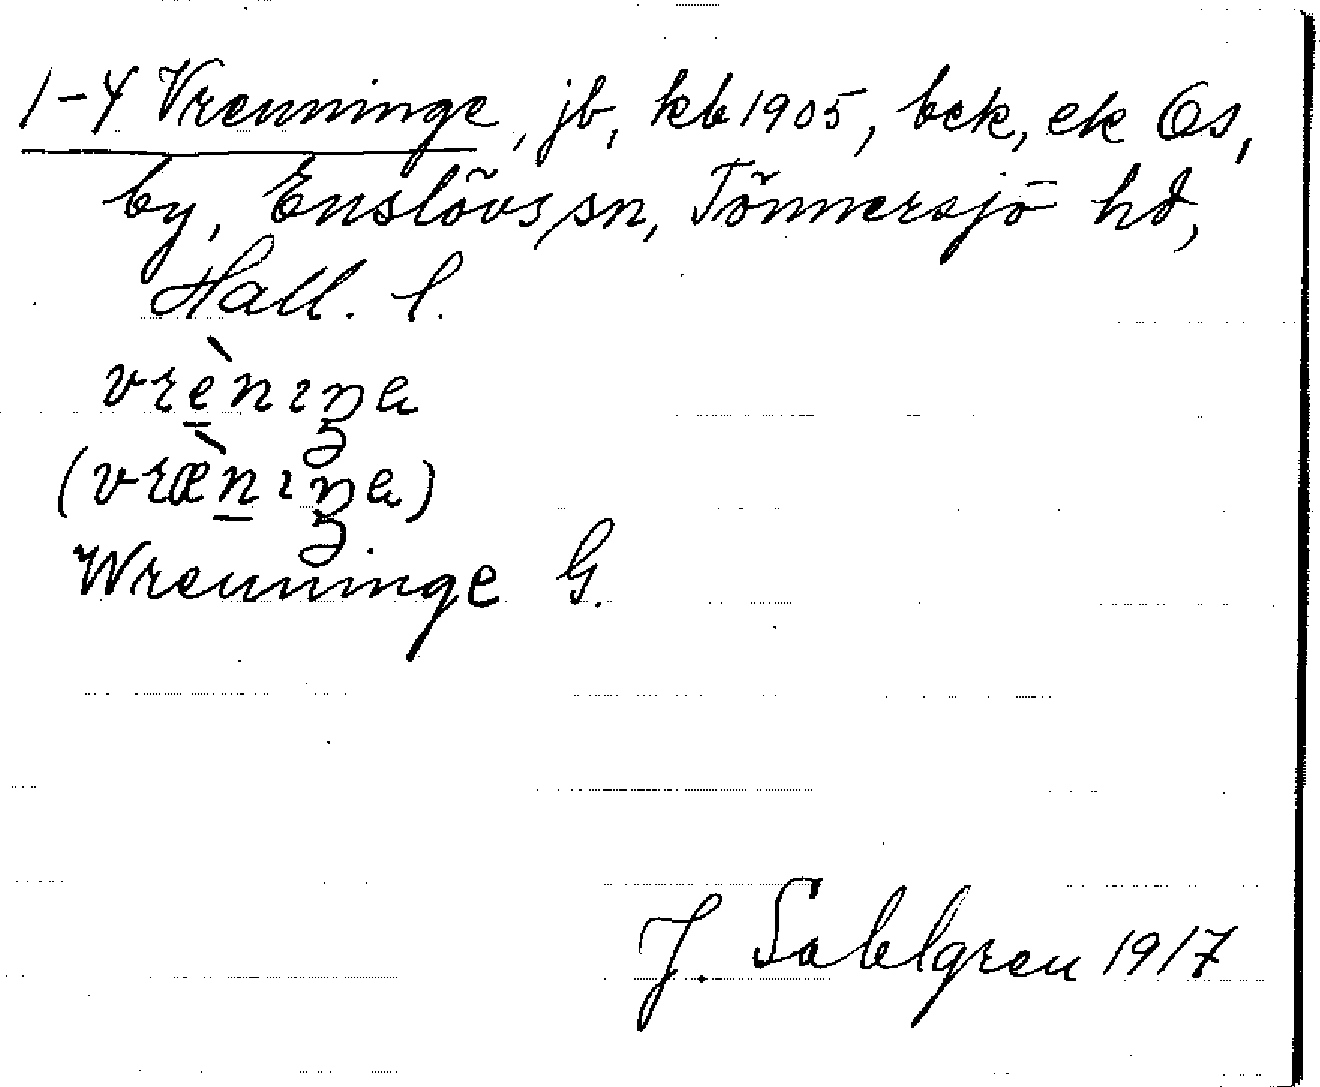 1-4 Vrenninge, jb, kb 1905, bek, ek Ös,
by, Enslövs sn, Tönnersjö hd,
Hall. l.
vrènıŋa
(vræ̀nıŋa)
Wrenninge G.
J. Sahlgren 1917